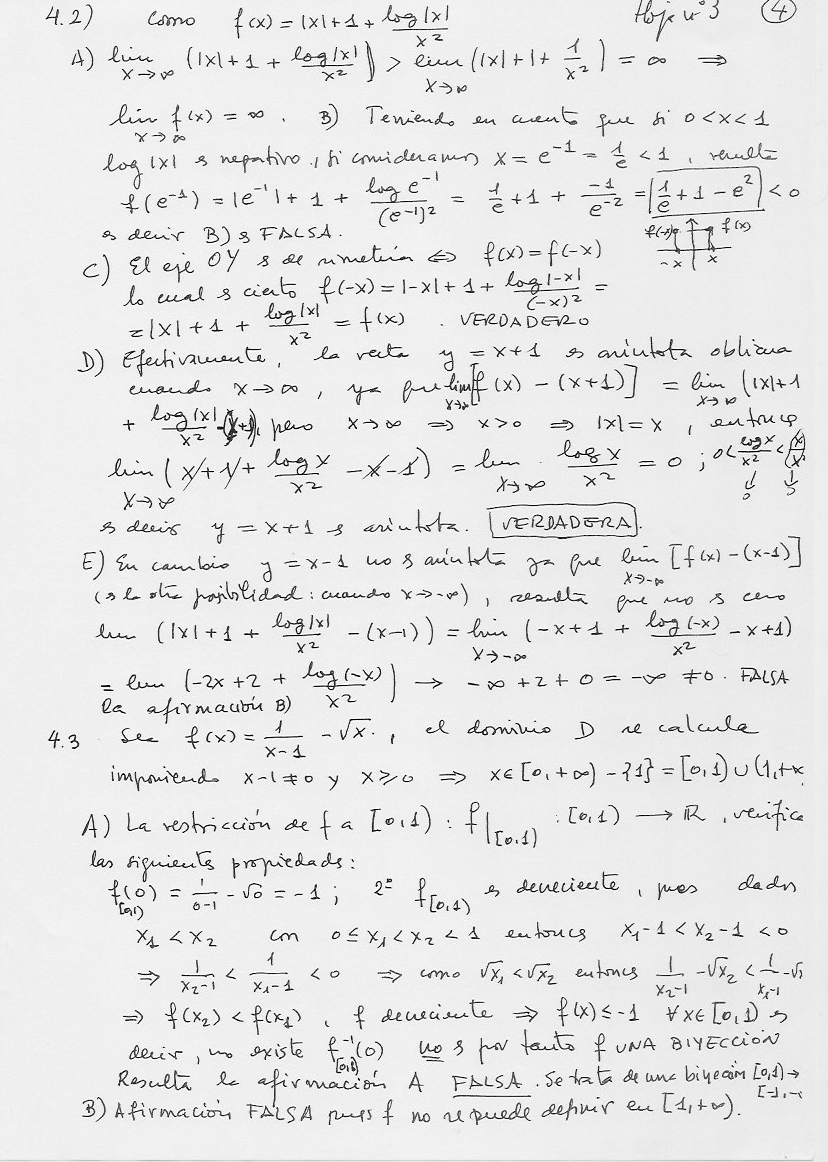 4.2) Como f(x) = |x|+1+ log|x|/x² Hoja nº 3 (4)
A) lim x→∞ (|x|+1+ log|x|/x²) > lim x→∞ (|x|+1+ 1/x²) = ∞ ⇒
lim x→∞ f(x) = ∞. B) Teniendo en cuenta que si 0<x<1
log|x| es negativo, si consideramos x = e⁻¹ = 1/e < 1, resulta
f(e⁻¹) = |e⁻¹|+1+ log e⁻¹/(e⁻¹)² = 1/e +1+ -1/e⁻² = 1/e +1-e² < 0
es decir B) es FALSA. f(-x) f(x) -x x
C) El eje OY es de simetría ⇔ f(x) = f(-x)
lo cual es cierto f(-x) = |-x|+1+ log|-x|/(-x)² =
= |x|+1+ log|x|/x² = f(x). VERDADERO
D) Efectivamente, la recta y = x+1 es asíntota oblicua
cuando x→∞, ya que lim x→∞ [f(x) - (x+1)] = lim x→∞ (|x|+1
+ log|x|/x² -(x+1)), pero x→∞ ⇒ x>0 ⇒ |x| = x, entonces
lim x→∞ (x+1+ log x/x² -x-1) = lim x→∞ log x/x² = 0 ; 0< log x/x² < x/x² ↓ 0 ↓ 0
es decir y = x+1 es asíntota. VERDADERA.
E) En cambio y = x-1 no es asíntota ya que lim x→-∞ [f(x) - (x-1)]
(es la otra posibilidad: cuando x→-∞), resulta que no es cero
lim (|x|+1+ log|x|/x² - (x-1)) = lim x→-∞ (-x+1+ log(-x)/x² -x+1)
= lim (-2x+2+ log(-x)/x²) → -∞+2+0 = -∞ ≠ 0. FALSA
la afirmación B)
4.3 Sea f(x) = 1/(x-1) - √x, el dominio D se calcula
imponiendo x-1≠0 y x⩾0 ⇒ x∈[0,+∞) - {1} = [0,1) ∪ (1,+∞
A) La restricción de f a [0,1) : f|[0,1) : [0,1) → ℝ, verifica
las siguientes propiedades:
f[0,1)(0) = 1/(0-1) - √0 = -1 ; 2º f[0,1) es decreciente, pues dados
x₁ < x₂ con 0≤x₁<x₂<1 entonces x₁-1 < x₂-1 < 0
⇒ 1/(x₂-1) < 1/(x₁-1) < 0 ⇒ como √x₁ < √x₂ entonces 1/(x₂-1) - √x₂ < 1/(x₁-1) - √
⇒ f(x₂) < f(x₁), f decreciente ⇒ f(x) ≤ -1 ∀x∈[0,1) es
decir, no existe f⁻¹[0,1)(0) no es por tanto f UNA BIYECCIÓN
Resulta la afirmación A FALSA. Se trata de una biyección [0,1)→
B) Afirmación FALSA pues f no se puede definir en [1,+∞).